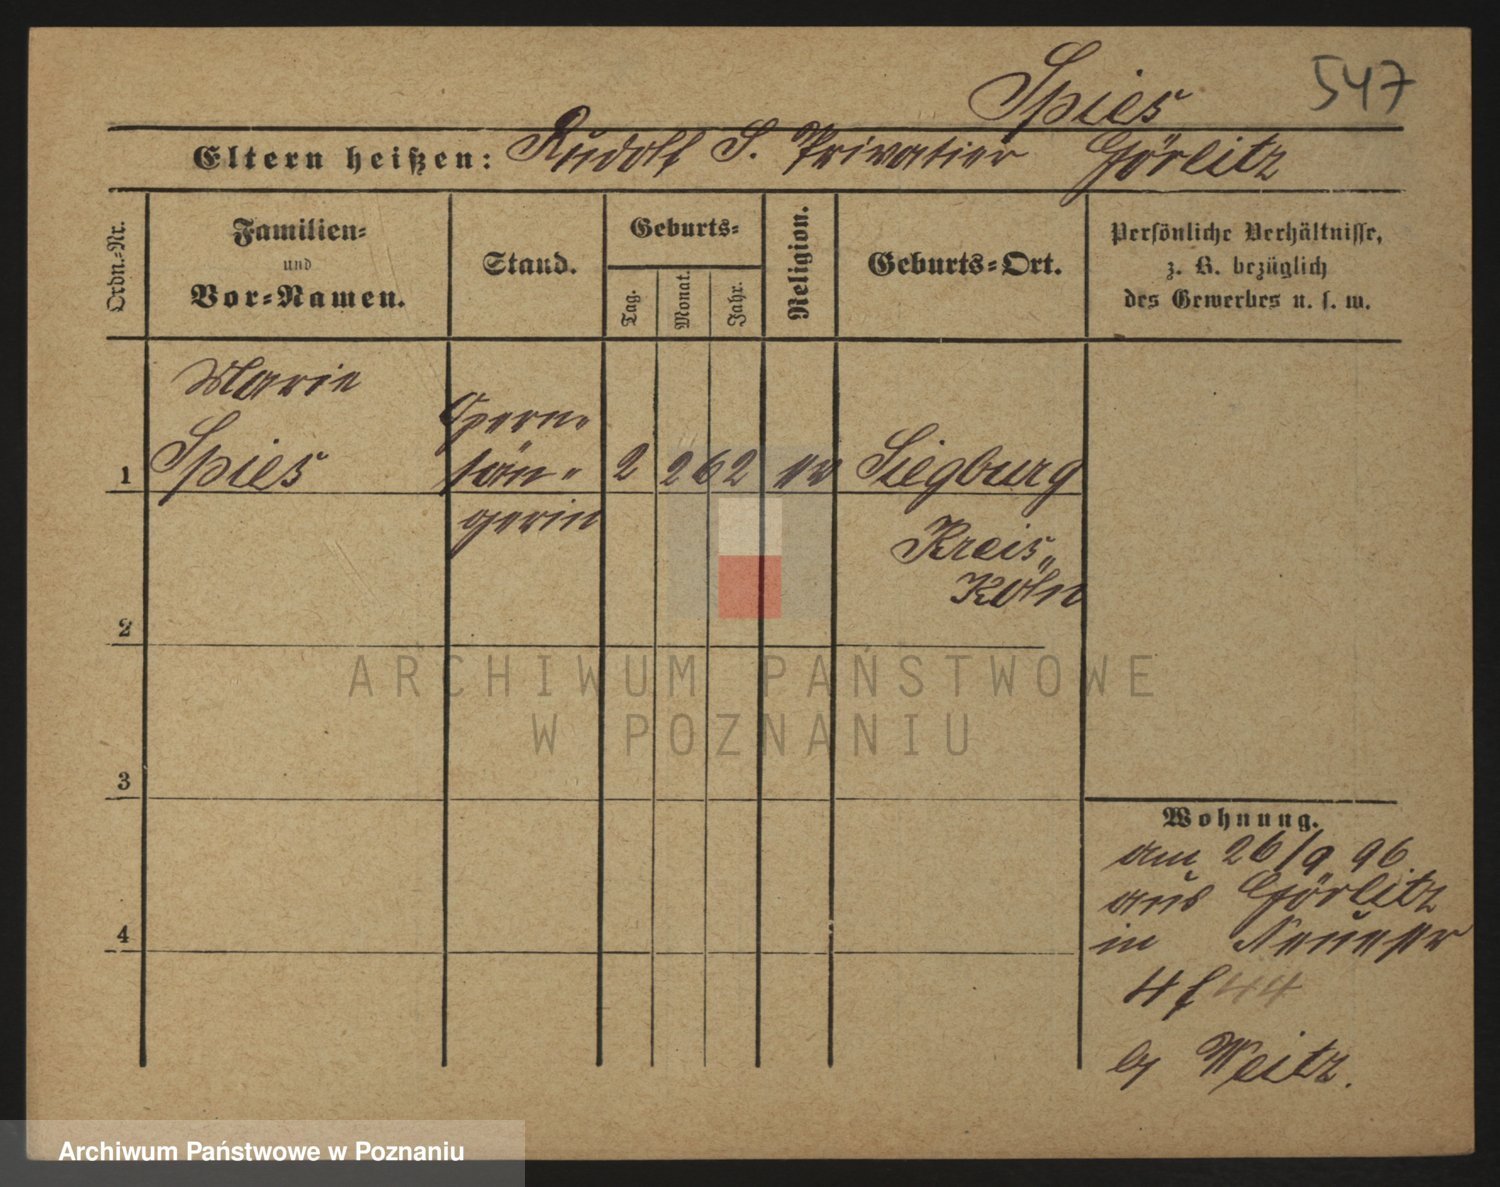 Spies 547
Eltern heißen: Rudolf S. Privatier Görlitz
Ordn.-Nr.
Familien-
und
Vor-Namen.
Stand.
Geburts-
Tag.
Monat.
Jahr.
Religion.
Geburts-Ort.
Persönliche Verhältnisse,
z. B. bezüglich
des Gewerbes u. s. w.
Marie
Spies
Opern-
sän-
gerin
1
2 2 62
Siegburg
Kreis
Köln
2
3
4
Wohnung.
am 26/9 96
aus Görlitz
in
4 44
Weitz.
ARCHIWUM PAŃSTWOWE
W POZNANIU
Archiwum Państwowe w Poznaniu